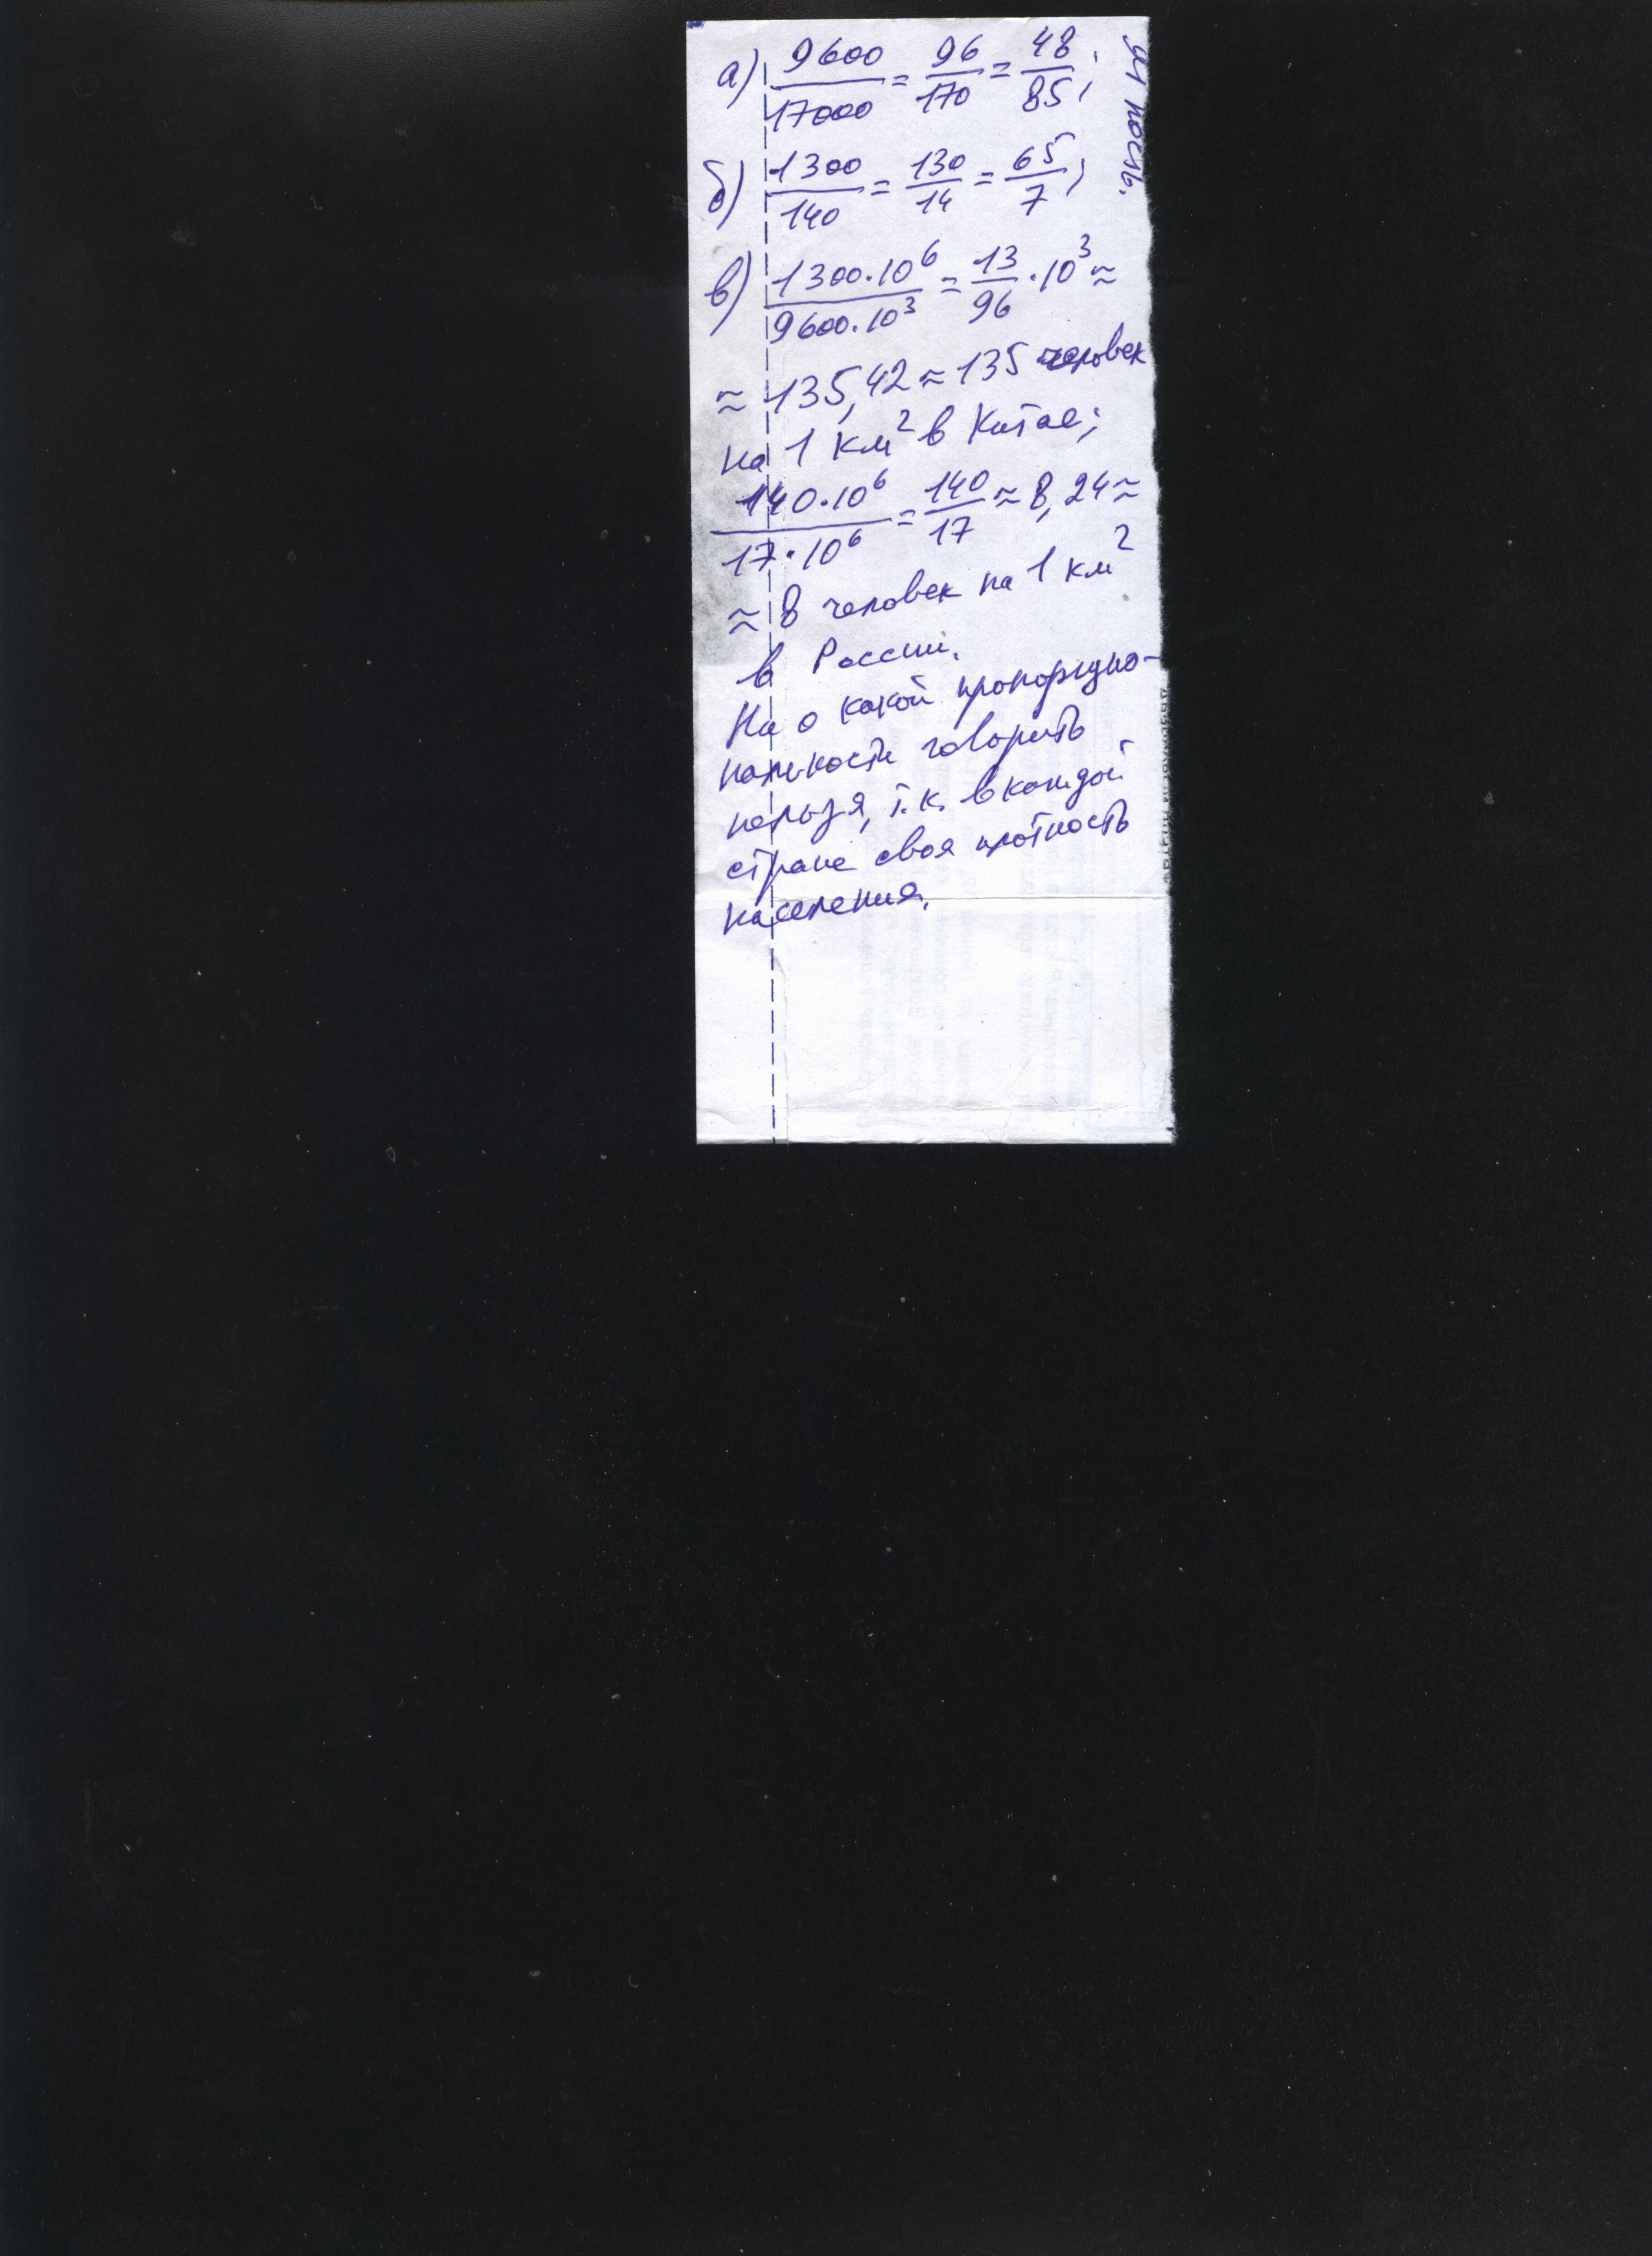 а) 9600/17000 = 96/170 = 48/85;
б) 1300/140 = 130/14 = 65/7;
в) 1300·10^6/9600·10^3 = 13/96·10^3 ≈
≈ 135,42 ≈ 135 человек
на 1 км² в Китае;
140·10^6/17·10^6 = 140/17 ≈ 8,24 ≈
≈ 8 человек на 1 км²
в России.
Ни о какой пропорцио-
нальности говорить
нельзя, т.к. в каждой
стране своя плотность
населения.